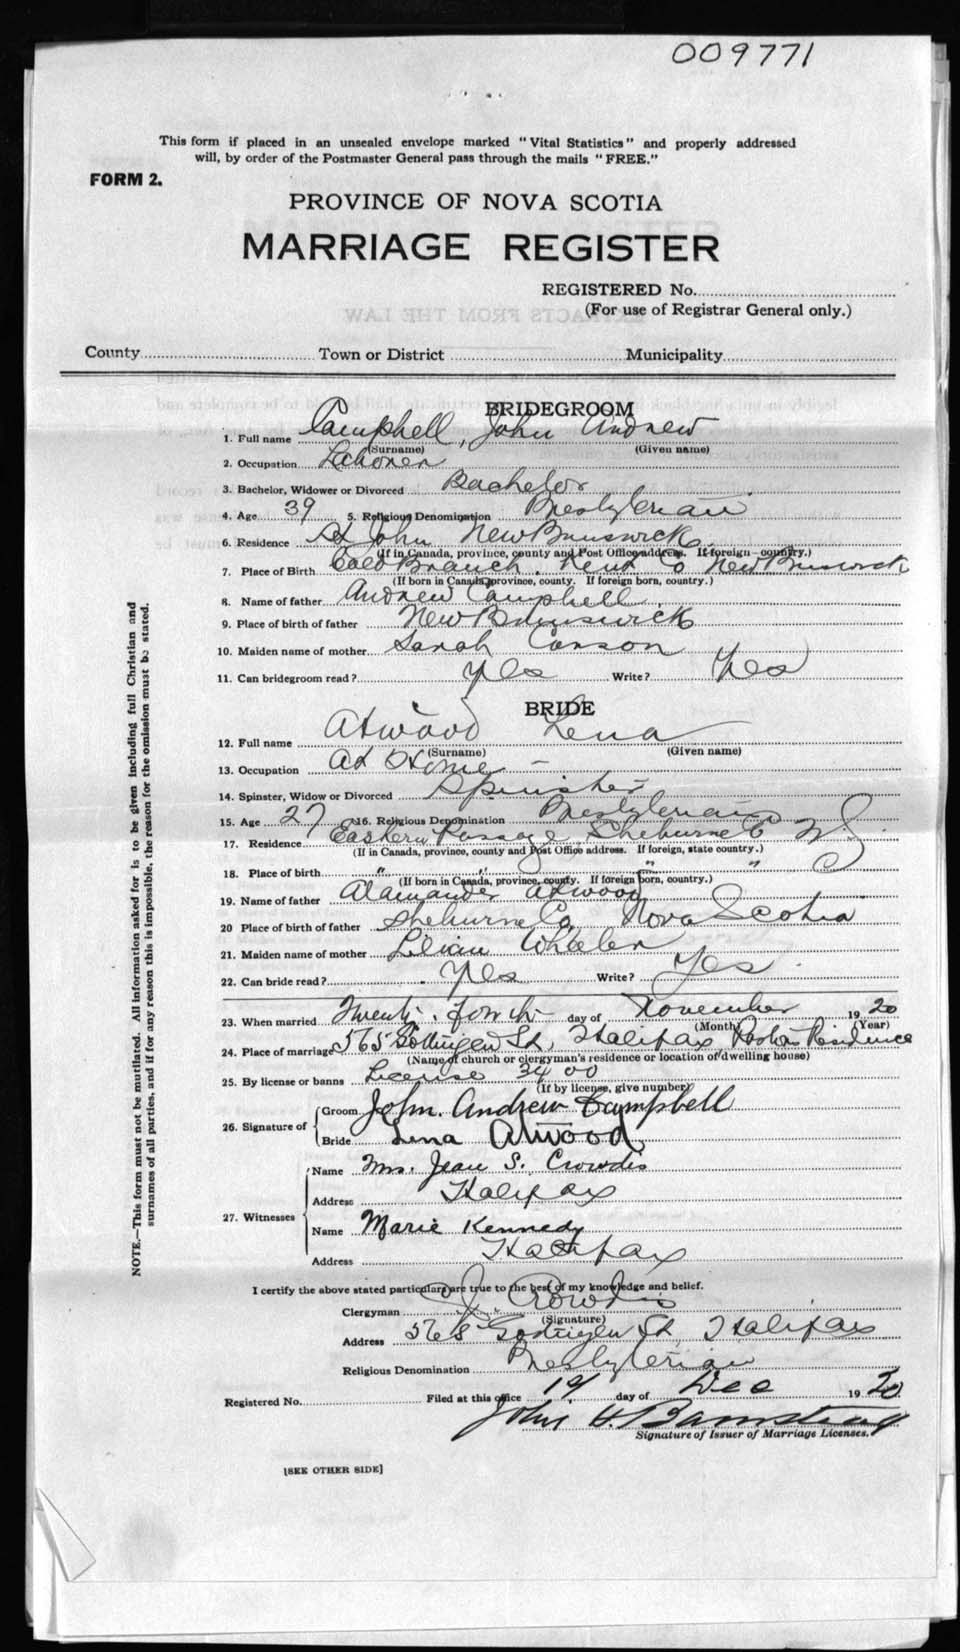 009771
This form if placed in an unsealed envelope marked "Vital Statistics" and properly addressed
will, by order of the Postmaster General pass through the mails "FREE."
FORM 2.
PROVINCE OF NOVA SCOTIA
MARRIAGE REGISTER
REGISTERED No.
(For use of Registrar General only.)
County Town or District Municipality
BRIDEGROOM
1. Full name Campbell, John Andrew
(Surname) (Given name)
2. Occupation
3. Bachelor, Widower or Divorced Bachelor
4. Age 39 5. Religious Denomination Presbyterian
6. Residence St John New Brunswick
(If in Canada, province, county and Post Office address. If foreign country.)
7. Place of Birth Branch. Kent Co New Brunswick
(If born in Canada, province, county. If foreign born, country.)
8. Name of father Andrew Campbell
9. Place of birth of father New Brunswick
10. Maiden name of mother Sarah
11. Can bridegroom read? Yes Write? Yes
BRIDE
12. Full name Atwood Lena
(Surname) (Given name)
13. Occupation At Home
14. Spinster, Widow or Divorced Spinster
15. Age 27 16. Religious Denomination Presbyterian
17. Residence Eastern Passage Shelburne Co N.S.
(If in Canada, province, county and Post Office address. If foreign, state country.)
18. Place of birth " " " "
(If born in Canada, province, county. If foreign born, country.)
19. Name of father Atwood
20 Place of birth of father Shelburne Co, Nova Scotia
21. Maiden name of mother Lilian Wheeler
22. Can bride read? Yes Write? Yes
23. When married Twenty. day of November 1920
(Month) (Year)
24. Place of marriage 565 Gottingen St, Halifax, Residence
(Name of church or clergyman's residence or location of dwelling house)
25. By license or banns License 3400
(If by license, give number)
26. Signature of Groom John. Andrew Campbell
Bride Lena Atwood
27. Witnesses Name Mrs. Jean S. Crowdis
Address Halifax
Name Marie Kennedy
Address Halifax
I certify the above stated particulars are true to the best of my knowledge and belief.
Clergyman Crowdis
(Signature)
Address Gottingen St, Halifax
Religious Denomination Presbyterian
Registered No. Filed at this office day of Dec 1920
John
Signature of Issuer of Marriage Licenses.
[SEE OTHER SIDE]
NOTE.—This form must not be mutilated. All information asked for is to be given including full Christian and
surnames of all parties, and if for any reason this is impossible, the reason for the omission must be stated.